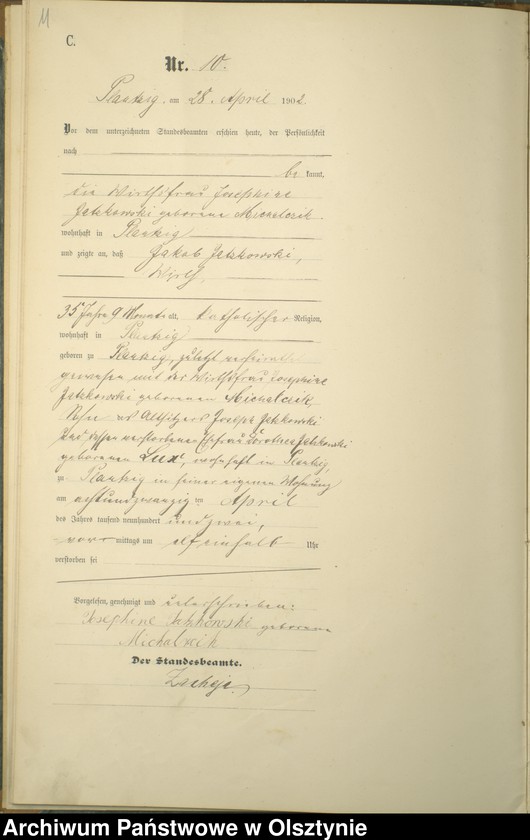 11
C.
Nr. 10.
am 28. April 1902
Vor dem unterzeichneten Standesbeamten erschien heute, der Persönlichkeit
nach
be kannt,
die Wirthsfrau Josephine
geborene Michalczik
wohnhaft in
und zeigte an, daß Jakob
Wirth,
35 Jahre 9 Monate alt, katholischer Religion,
wohnhaft in
geboren zu zuletzt verheirathet
gewesen mit der Wirthsfrau Josephine
geborenen Michalczik,
Sohn des Altsitzers Joseph
und dessen verstorbenen Ehefrau Dorothea
geborenen Lux, wohnhaft in
zu in seiner eigenen Wohnung
am achtundzwanzig ten April
des Jahres tausend neunhundert und zwei,
vor mittags um elf einhalb Uhr
verstorben sei
Vorgelesen, genehmigt und unterschrieben:
Josephine geborene
Michalczik
Der Standesbeamte.
Archiwum Państwowe w Olsztynie